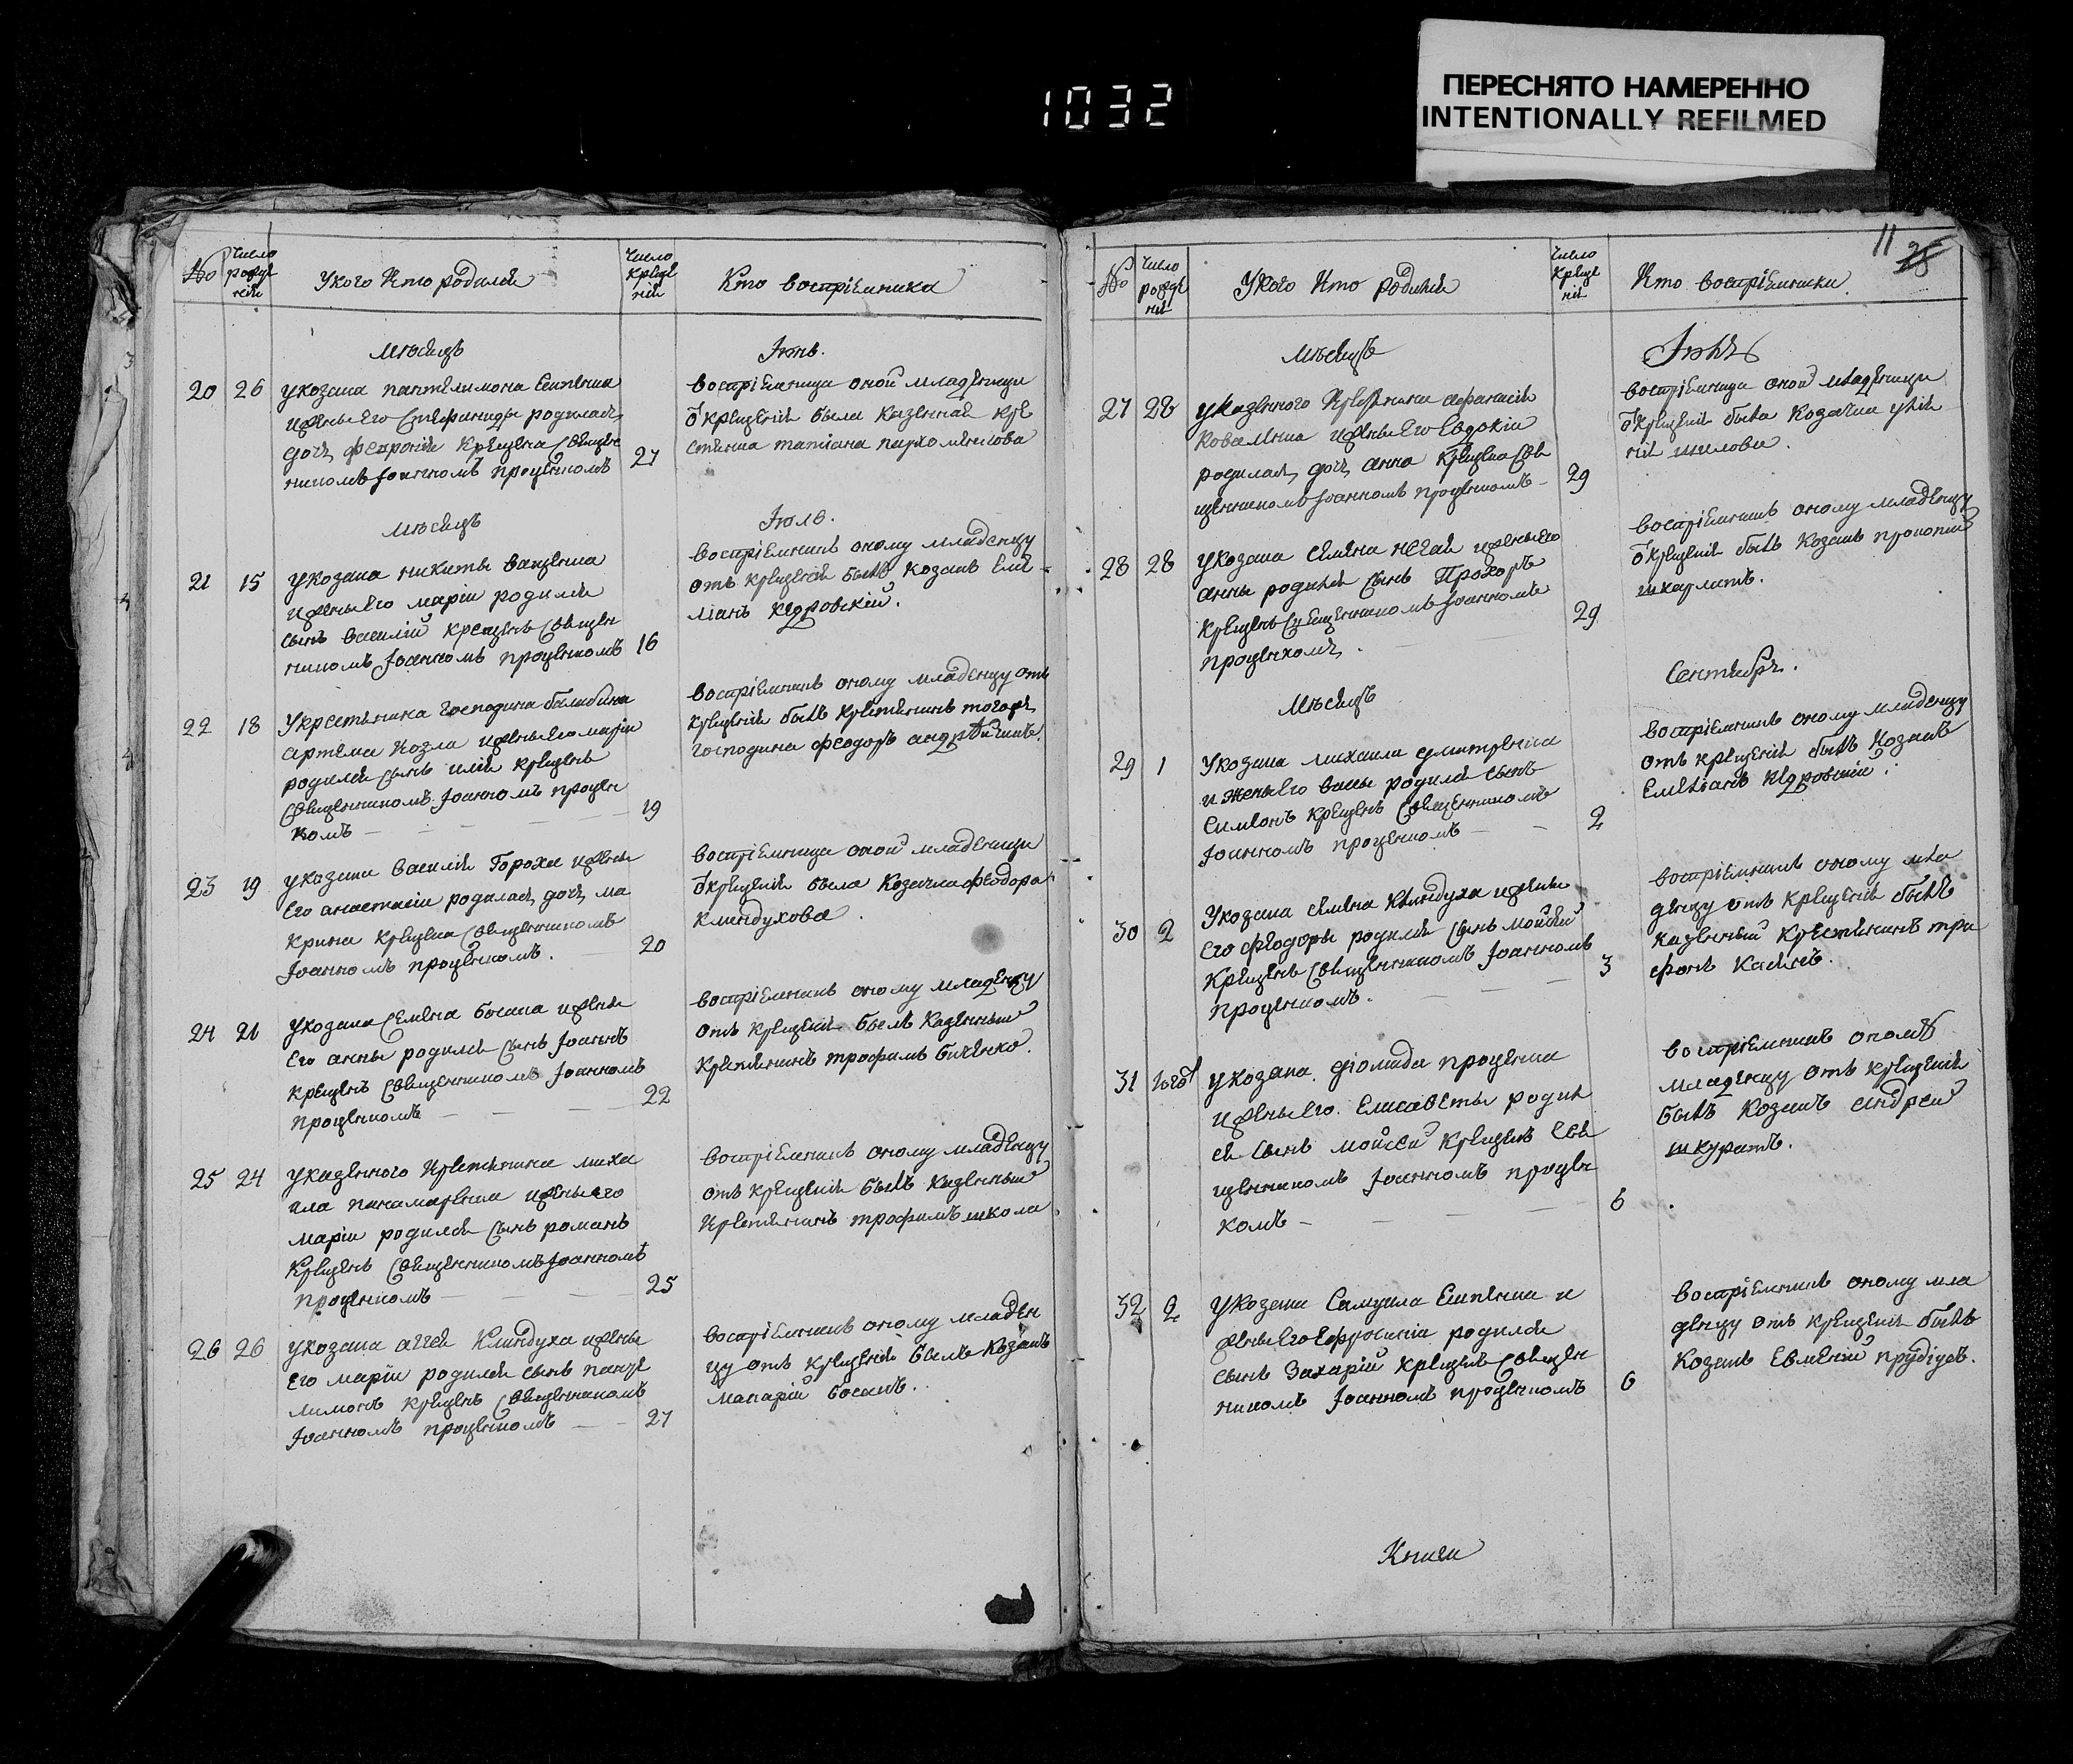 1032
ПЕРЕСНЯТО НАМЕРЕННО
INTENTIONALLY REFILMED
11
28
№
Число рожде нія
У кого кто родился
Число креще нія
Кто воспріемники
Мѣсяцъ Іюнь.
20 26
У козака пантелимона Ешпенка
и жены его Стефаниды родилась
дочь феврония крещена священ
никомъ Іоанномъ проценкомъ 27
воспріемница оной младеници
от крещенія была казенная кре
стянка татіана пархоменкова
Мѣсяцъ Іюль.
21 15
У козака никиты ваценка
и жены его маріи родился
сынъ василій крещенъ священ
никомъ Іоанномъ проценкомъ 16
воспріемникъ оному младенцу
отъ крещенія былъ козакъ Еми
ліанъ кедровскій.
22 18
У крестянина господина балабина
артема козла и жены его маріи
родился сынъ илія крещенъ
священникомъ Іоанномъ процен
комъ 19
воспріемникъ оному младенцу отъ
крещенія былъ крестянинъ тогожъ
господина феодоръ
23 19
У козака василія Гороха и жены
его анастасіи родилась дочь ма
крина крещена священникомъ
Іоанномъ проценкомъ. 20
воспріемница оной младеници
от крещенія была козачка феодора
клиндухова.
24 21
У козака Семена босака и жены
его анны родился сынъ Іоаннъ
крещенъ священникомъ Іоанномъ
проценкомъ 22
воспріемникъ оному младенцу
отъ крещенія былъ казенный
крестянинъ трофимъ биченко.
25 24
У казенного крестянина миха
ила панамаренка и жены его
маріи родился сынъ романъ
крещенъ священникомъ Іоанномъ
проценкомъ 25
воспріемникъ оному младенцу
отъ крещенія былъ казенный
крестянинъ трофимъ школа
26 26
У козака аггея клиндуха и жены
его маріи родился сынъ панте
лимонъ крещенъ священникомъ
Іоанномъ проценкомъ 27
воспріемникъ оному младен
цу отъ крещенія былъ козакъ
макарій босакъ.
№
Число рожде нія
У кого кто родился
Число креще нія
Кто воспріемники
Мѣсяцъ Іюль
27 28
У казенного крестянина афанасія
коваленка и жены его Евдокіи
родилась дочь анна крещена свя
щенникомъ Іоанномъ проценкомъ 29
воспріемница оной младеници
от крещенія была козачка улія
нія шилова.
28 28
У козака семена нечая и жены его
анны родился сынъ Прохоръ
крещенъ священникомъ Іоанномъ
проценкомъ. 29
воспріемникъ оному младенцу
от крещенія былъ козакъ прокопій
шкарлатъ.
Мѣсяцъ Сентябрь.
29 1
У козака михаила дмитренка
и жены его васы родился сынъ
симеонъ крещенъ священникомъ
Іоанномъ проценкомъ 2
воспріемникъ оному младенцу
отъ крещенія былъ козакъ
Емеліанъ кедровскій.
30 2
У козака семена клиндуха и жены
его феодоры родился сынъ мойсей
крещенъ священникомъ Іоанномъ
проценкомъ. 3
воспріемникъ оному мла
денцу отъ крещенія былъ
казенный крестянинъ три
фонъ
31
У козака діомида проценка
и жены его Елисаветы родил
ся сынъ мойсей крещенъ свя
щенникомъ Іоанномъ процен
комъ 6
воспріемникъ оному
младенцу отъ крещенія
былъ козакъ андрей
шкуратъ.
32 2
У козака Самуила Ешпенка и
жены его Ефросиніи родился
сынъ Захарій крещенъ священ
никомъ Іоанномъ проценкомъ 6
воспріемникъ оному мла
денцу отъ крещенія былъ
козакъ Евменій
Книги